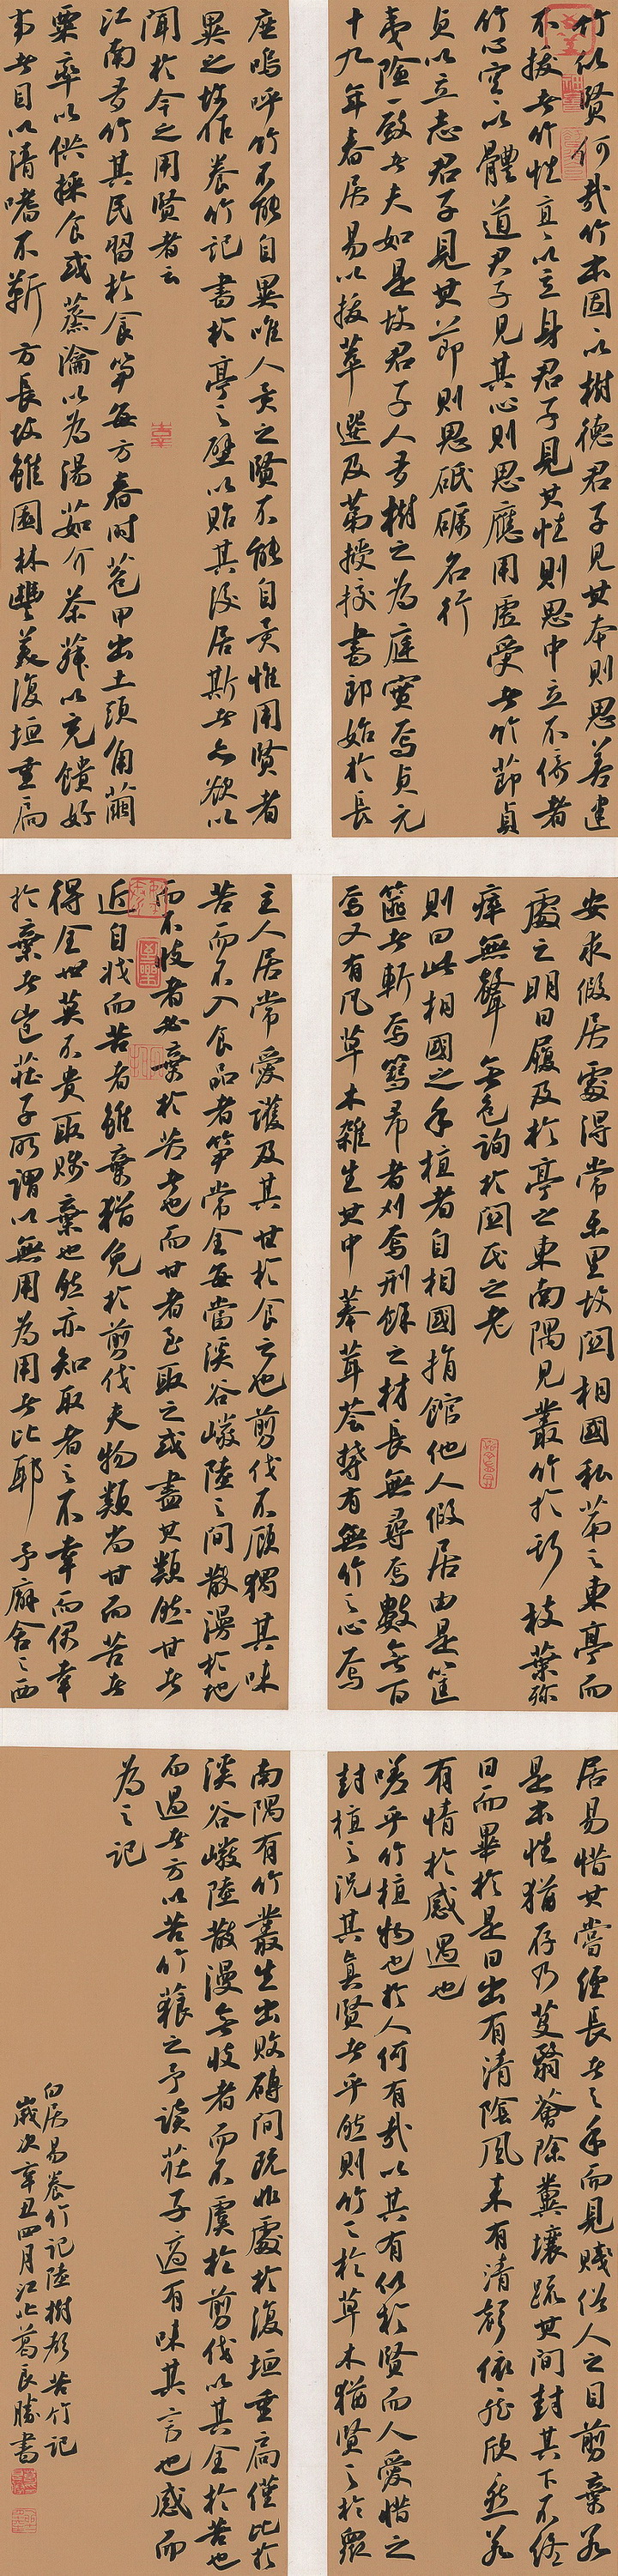 竹似賢何哉竹本固〻以樹德君子見其本則思善建
不拔者竹性直〻以立身君子見其性則思中立不倚者
竹心空〻以體道君子見其心則思應用虛受者竹節貞
貞以立志君子見其節則思砥礪名行
夷險一致者夫如是故君子人多樹之為庭實焉貞元
十九年春居易以拔萃選及第授校書郎始於長
安求假居處得常樂里故關相國私第之東亭而
處之明日履及於亭之東南隅見叢竹於斯枝葉殄
瘁無聲無色詢於關氏之老
則曰此相國之手植者自相國捐館他人假居由是筐
篚者斬焉篲帚者刈焉刑餘之材長無尋焉數無百
焉又有凡草木雜生其中菶茸薈蔚有無竹之心焉
居易惜其嘗經長者之手而見賤俗人之目剪棄若
是本性猶存乃芟翳薈除糞壤疏其間封其下不終
日而畢於是日出有清陰風來有清聲依依然欣欣然若
有情於感遇也
嗟乎竹植物也於人何有哉以其有似於賢而人愛惜之
封植之況其真賢者乎然則竹之於草木猶賢之於眾
庶嗚呼竹不能自異唯人異之賢不能自異惟用賢者
異之故作養竹記書於亭之壁以貽其後居斯者亦欲以
聞於今之用賢者云
江南多竹其民習於食筍每方春時苞甲出土頭角繭
栗率以供採食或蒸瀹以為湯茹介茶荈以充饋好
事者目以清嗜不靳方長故雖園林豐美復垣重扃
主人居常愛護及其甘於食之也剪伐不顧獨其味
苦而不入食品者筍常全每當溪谷巖陸之間散漫於地
而不收者必棄於苦者也而甘者至取之或盡其類然甘者
近自戕而苦者雖棄猶免於剪伐夫物類尚甘而苦者
得全世莫不貴取賤棄也然亦知取者之不幸而偶幸
於棄者豈莊子所謂以無用為用者比耶 予廨舍之西
南隅有竹叢生出敗磚間既非處於復垣重扃僅比於
溪谷巖陸散漫無收者而不虞於剪伐以其全於苦也
而過者方以苦竹之予讀莊子適有味其言也感而
為之記
白居易養竹記陸樹聲苦竹記
歲次辛丑四月江北葛良勝書